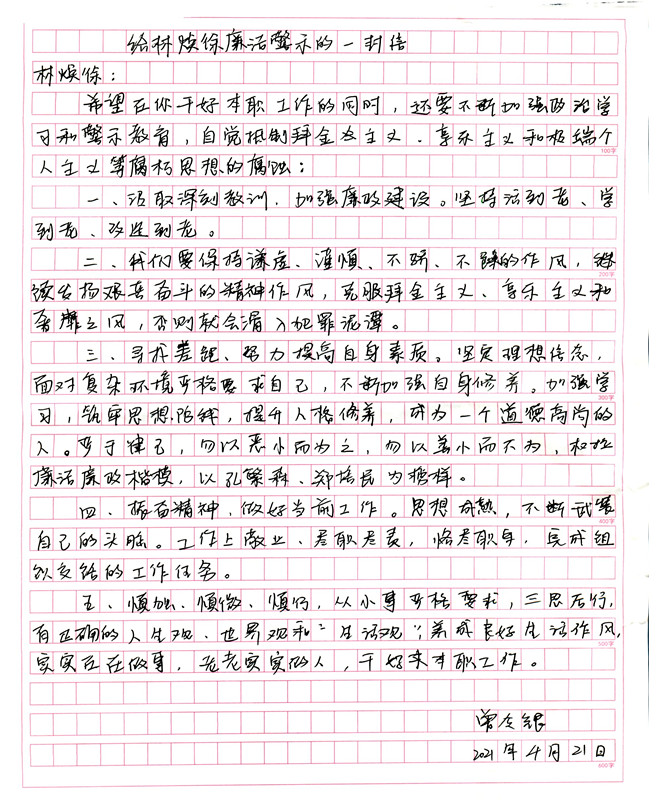 给林焕徐廉洁警示的一封信
林焕徐：
希望在你干好本职工作的同时，还要不断加强政治学
习和警示教育，自觉抵制拜金主义、享乐主义和极端个
人主义等腐朽思想的腐蚀：
100字
一、汲取深刻教训，加强廉政建设。坚持活到老、学
到老、改造到老。
二、我们要保持谦虚、谨慎、不骄、不躁的作风，继
200字
续发扬艰苦奋斗的精神作风，克服拜金主义、享乐主义和
奢靡之风，否则就会滑入犯罪泥潭。
三、寻找差距、努力提高自身素质。坚定理想信念，
面对复杂环境严格要求自己，不断加强自身修养。加强学
300字
习，筑牢思想防线，提升人格修养，成为一个道德高尚的
人。严于律己，勿以恶小而为之，勿以善小而不为，权牡
廉洁廉政楷模，以孔繁森、郑培民为榜样。
四、振奋精神、做好当前工作。思想成熟，不断武装
400字
自己的头脑。工作上敬业、尽职尽责，恪尽职守，完成组
织交给的工作任务。
五、慎独、慎微、慎行，从小事严格要求，三思后行，
有正确的人生观、世界观和"生活观"；养成良好生活作风，
500字
实实在在做事，老老实实做人，干好来本职工作。
曾令银
2021年4月21日
600字